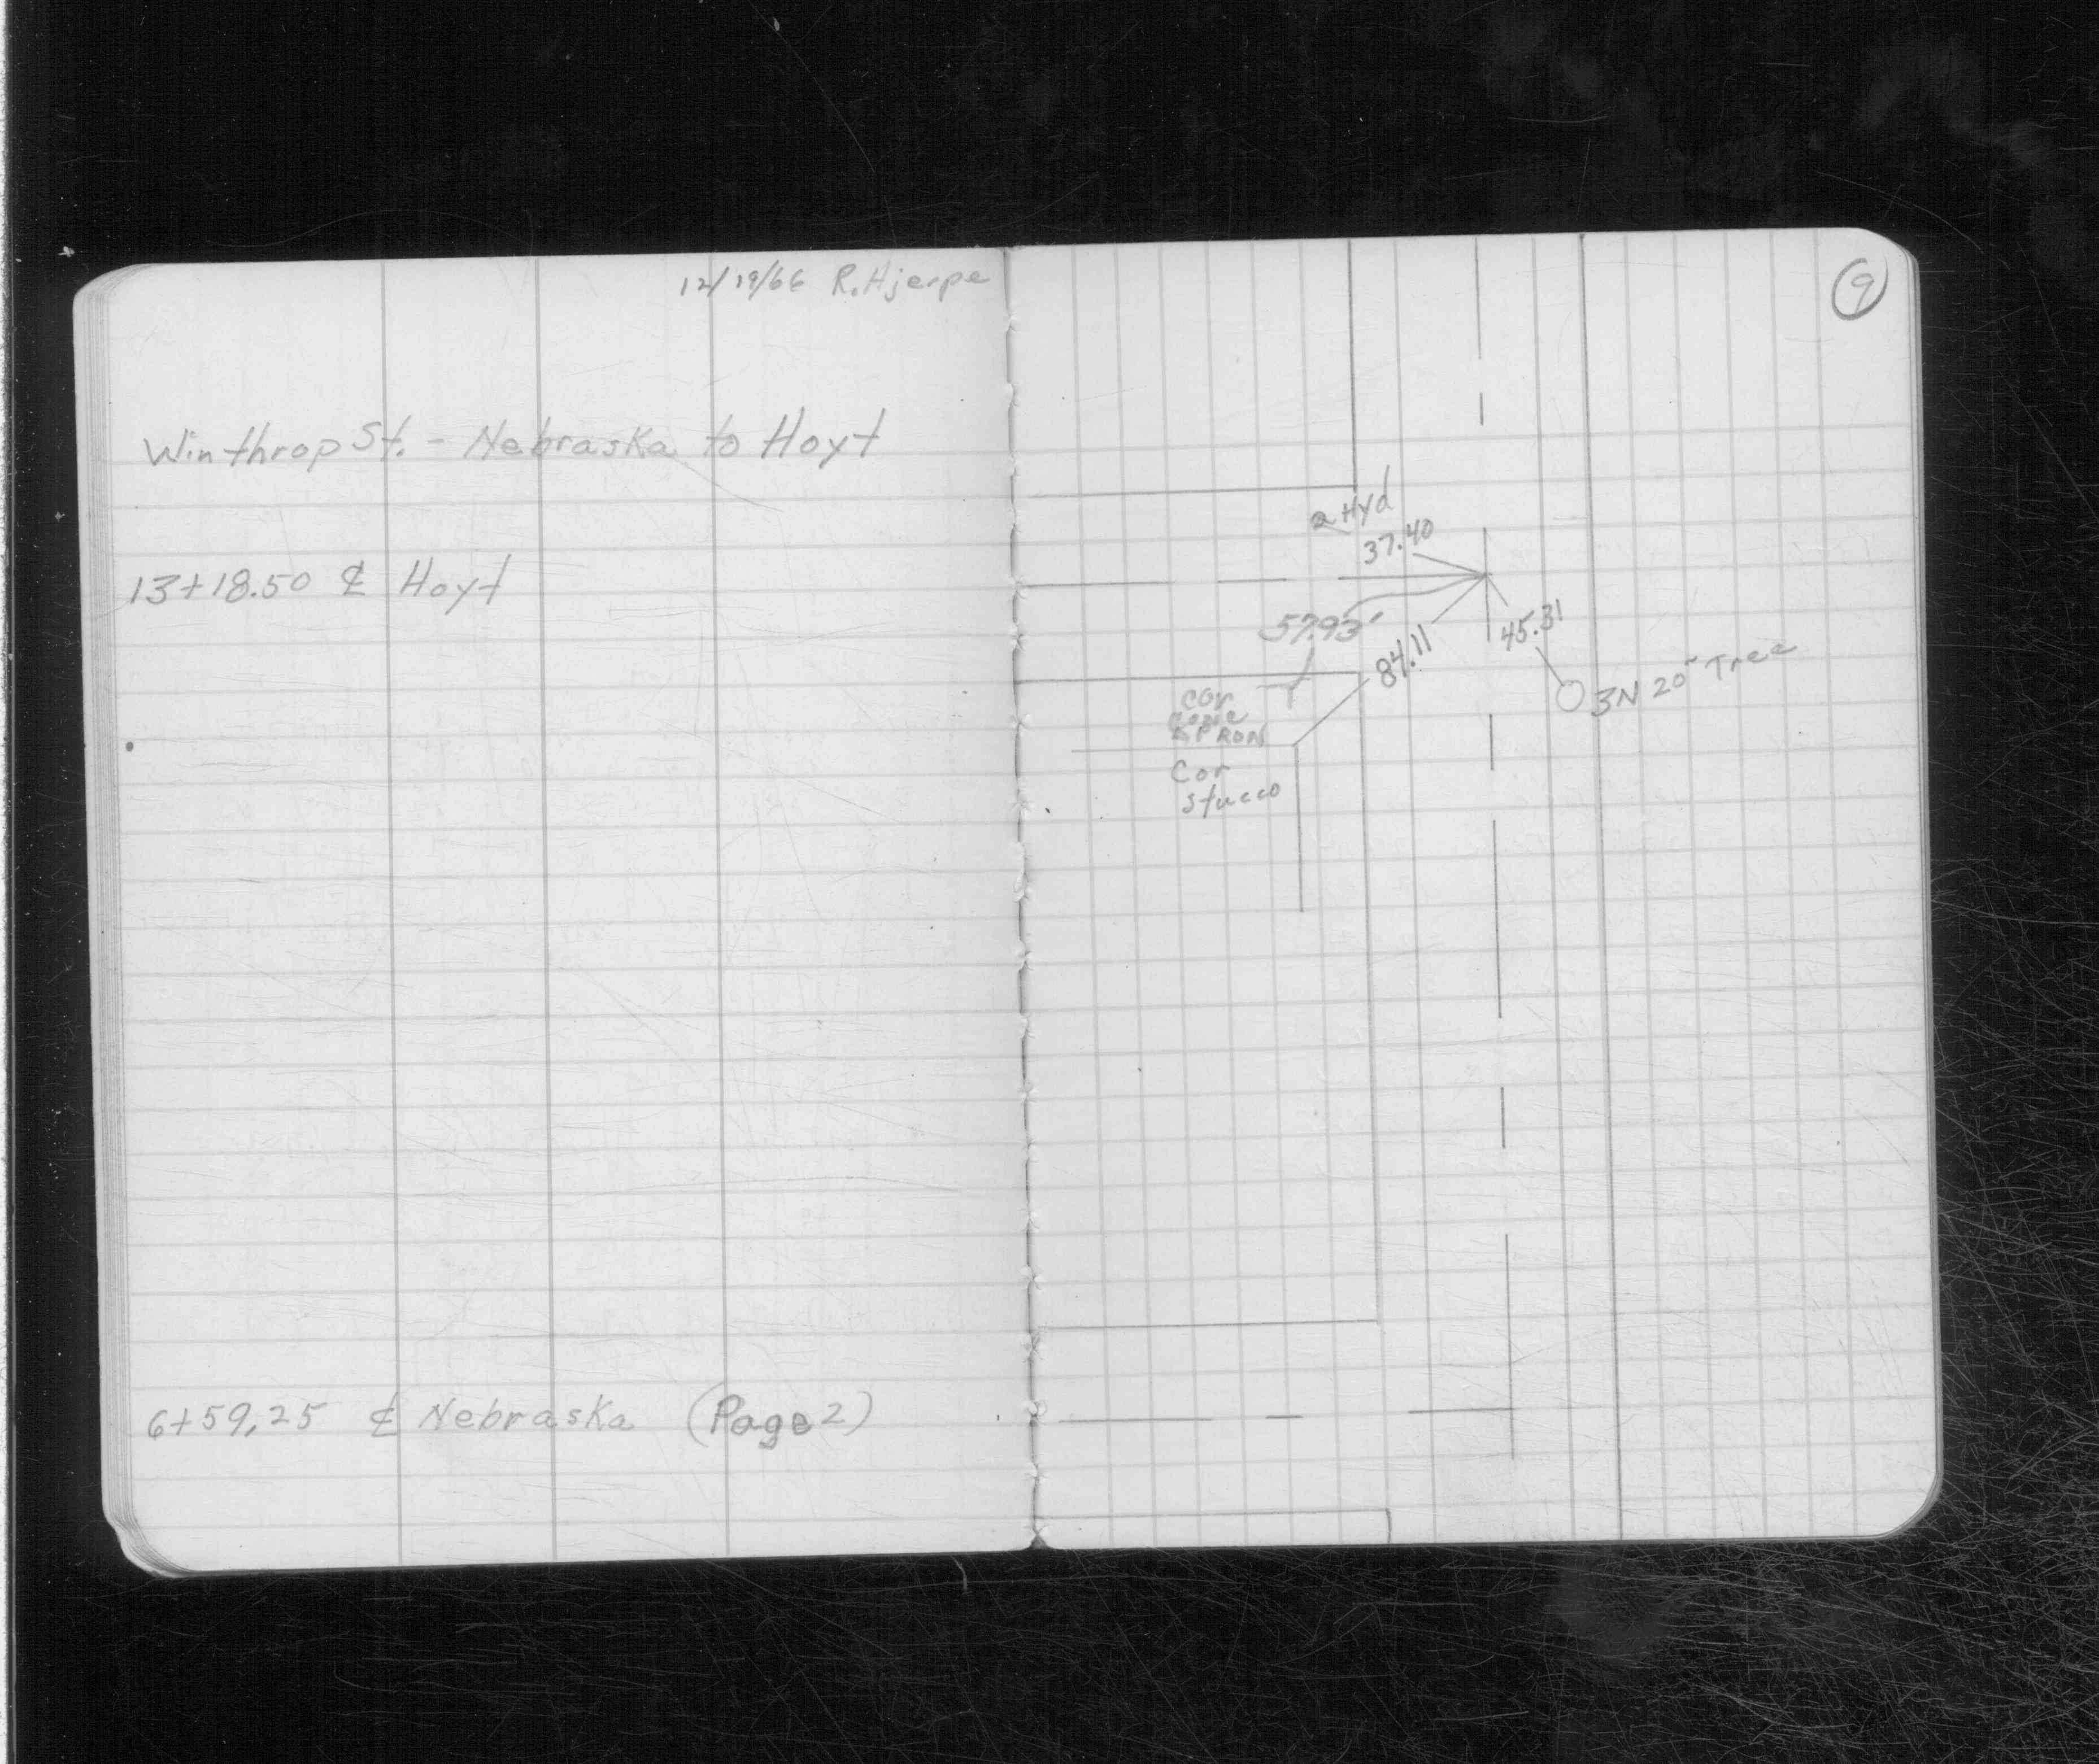 12/19/66 R. Hjerpe
Winthrop St. - Nebraska to Hoyt
13+18.50 ℄ Hoyt
6+59.25 ℄ Nebraska (Page 2)
9
Hyd
37.40
57.93'
84.11
45.31
3N 20" Tree
Cor
APRON
Cor
Stucco